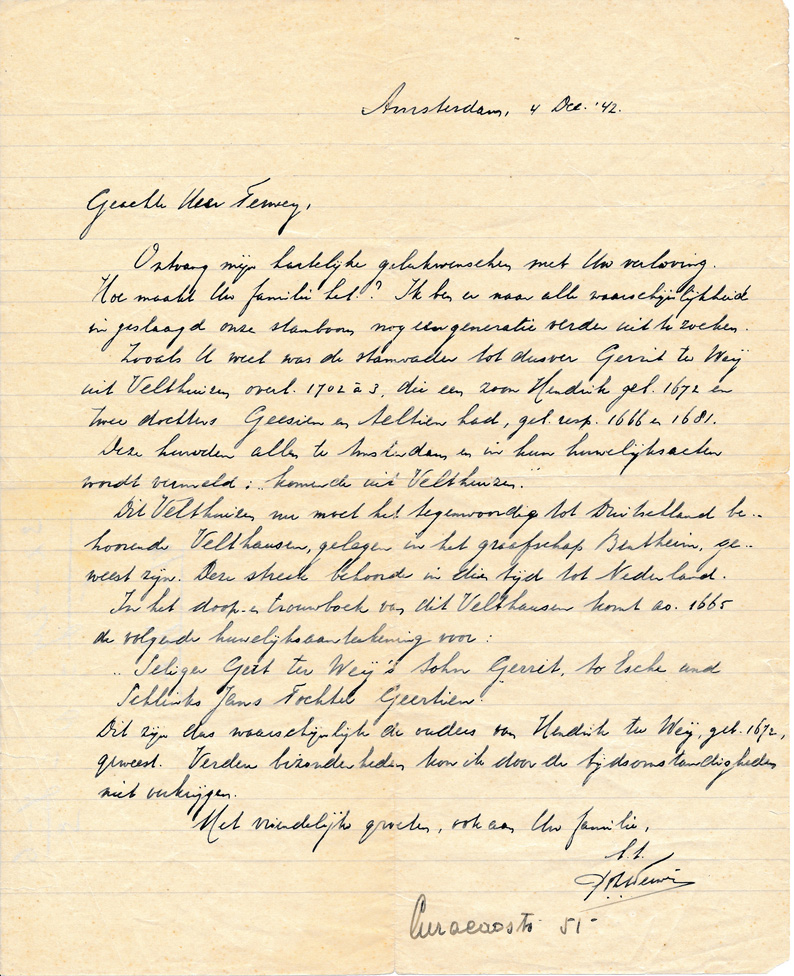 Amsterdam, 4 Dec. '42.
Geachte Heer Terwey,
Ontvang mijn hartelijke gelukwenschen met Uw verloving.
Hoe maakt Uw familie het? Ik ben er naar alle waarschijnlijkheid
in geslaagd onze stamboom nog een generatie verder uit te zoeken.
Zooals U weet was de stamvader tot dusver Gerrit ter Weij
uit Velthuizen overl. 1702 à 3, die een zoon Hendrik geb. 1672 en
twee dochters Geesien en Aeltien had, geb. resp. 1666 en 1681.
Deze huwden allen te Amsterdam en in hun huwelijksacten
wordt vermeld: „komende uit Velthuizen."
Dit Velthuizen nu moet het tegenwoordig tot Duitschland be-
hoorende Velthausen, gelegen in het graafschap Bentheim, ge-
weest zijn. Deze streek behoorde in dien tijd tot Nederland.
In het doop- en trouwboek van dit Velthausen komt ao. 1665
de volgende huwelijksaanteekening voor:
„Seliger Gert ter Weij's sohn Gerrit, to Esche und
Schlinks Jans Tochter Geertien."
Dit zijn dus waarschijnlijk de ouders van Hendrik ter Weij, geb. 1672,
geweest. Verdere bizonderheden kon ik door de tijdsomstandigheden
niet verkrijgen.
Met vriendelijke groeten, ook aan Uw familie,
t.t.
Curacaostr 51-